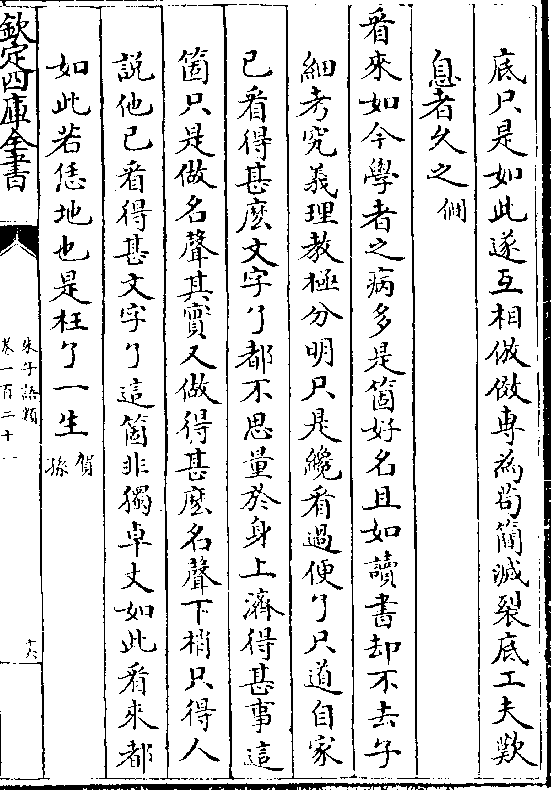 底只是如此遂互相倣傚專為茍簡滅裂底工夫歎
息者久之僩
看來如今學者之病多是箇好名且如讀書却不去子
細考究義理教極分明只是纔看過便了只道自家
已看得甚麽文字了都不思量於身上濟得甚事這
箇只是做名聲其實又做得甚麽名聲下梢只得人
說他已看得甚文字了這箇非獨卓丈如此看來都
如此若恁地也是枉了一生賀孫
欽定四庫全書
朱子語類
卷一百二十一
十六